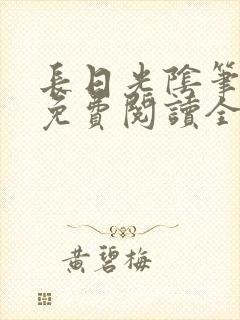 長日光陰筆
免費閱讀全
黃碧梅